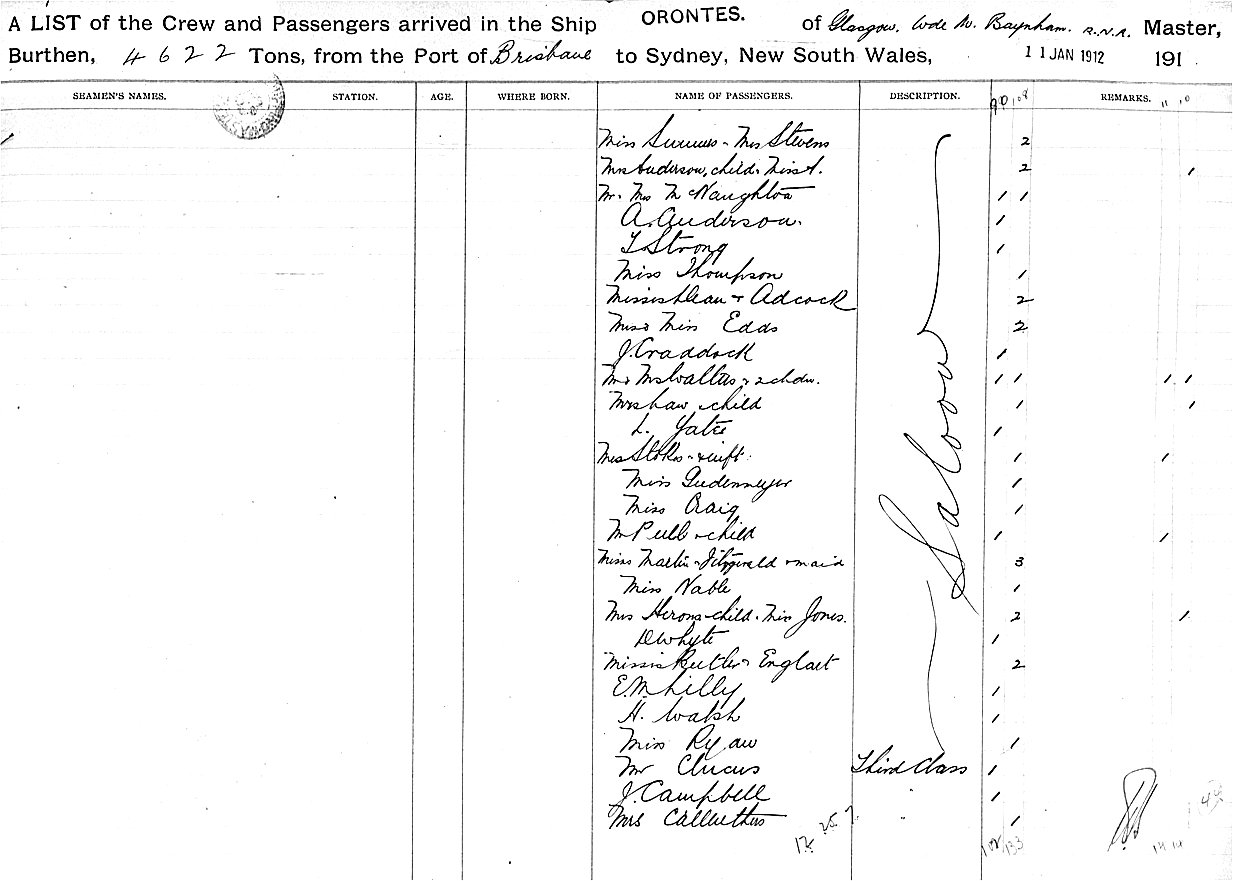 A LIST of the Crew and Passengers arrived in the Ship ORONTES. of Glasgow, Code W. Baynham. R.N.R. Master,
Burthen, 4622 Tons, from the Port of Brisbane to Sydney, New South Wales, 11 JAN 1912 191
SEAMEN'S NAMES. STATION. AGE. WHERE BORN. NAME OF PASSENGERS. DESCRIPTION. REMARKS.
Miss - Mrs Stevens 2
Mrs Anderson, child, Miss A. 2 1
Mr. Mrs McNaughton 1 1
A. Anderson. 1
T Strong 1
Miss Thompson 1
Misses Dean + Adcock 2
Mrs + Miss Edds 2
J. Craddock 1
Mr + Mrs Wallus + 2 chdn. 1 1 1 1
Mrs Shaw + child 1 1
L. Yates 1
Mrs Stokes + inft. 1 1
Miss 1
Miss Craig 1
Mr + child 1 1
Misses Martin + Fitzgerald + maid 3
Miss Nable 1
Mrs Herons + child. Miss Jones. 2 1
D Whyte 1
Misses Butler + 2
E.M. Lilly 1
H. Walsh 1
Miss Ryan 1
Saloon
Mr Clucus Third Class 1
J. Campbell " 1
Mrs 1